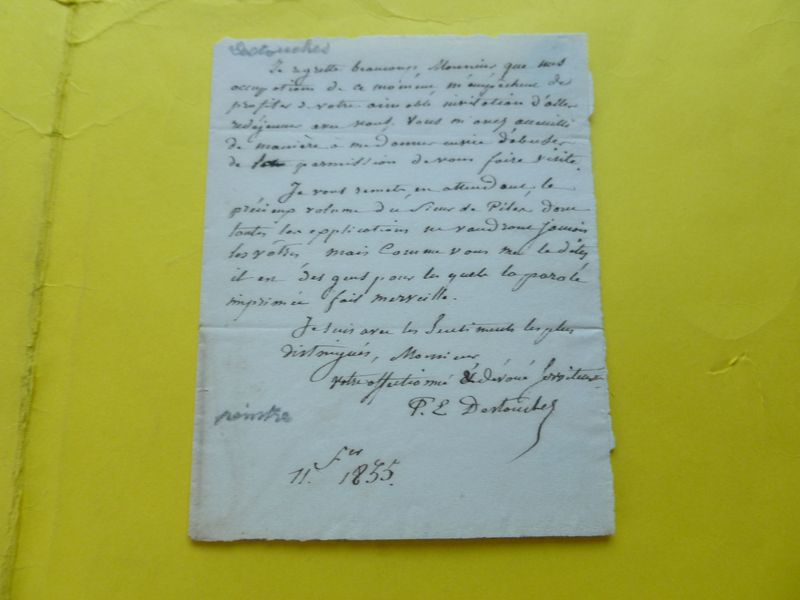 Destouches
Je regrette beaucoup Monsieur que mes
occupations de ce moment, m'empêchent de
profiter de votre aimable invitation d'aller
redejeuner avec vous, vous m'avez accueilli
de manière a me donner envie d'abuser
de la permission de vous faire visite.
Je vous remets, en attendant, le
précieux volume du Sieur de Piles dont
toutes les explications ne vaudront jamais
les vôtres mais comme vous me le dites
il en des gens pour les quels la parole
imprimée fait merveille.
Je suis avec les Sentiments les plus
distingués, Monsieur,
votre affectionné & dévoué Serviteur
P. E Destouches
peintre
11. fer 1835.